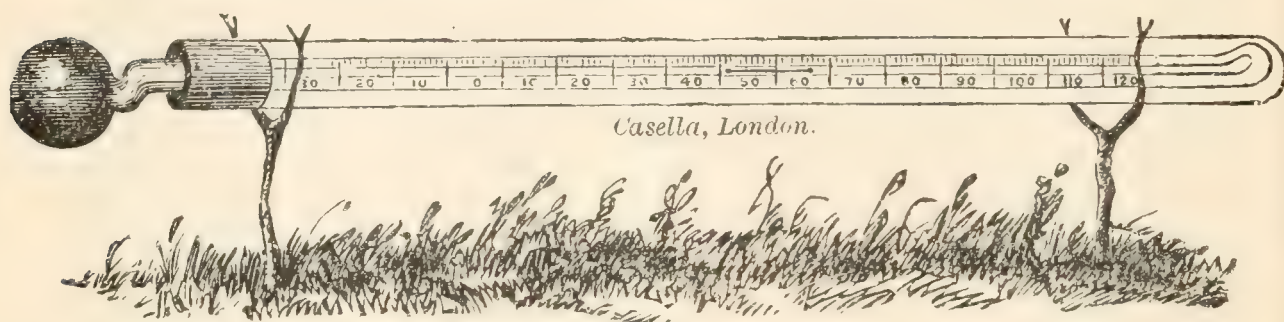 30 20 10 0 10 20 30 40 50 60 70 80 90 100 110 120
Casella, London.